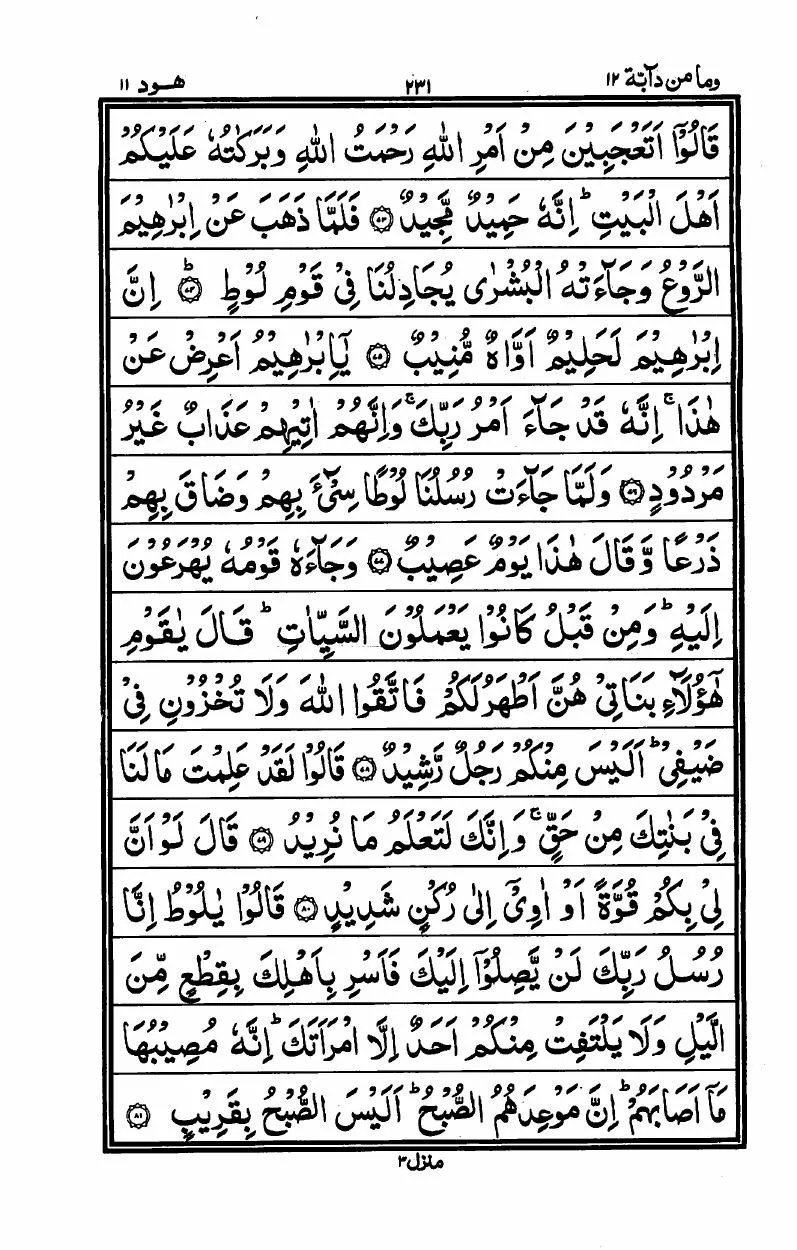 وما من دآبة ١٢
٢٣١
هود ١١
قَالُوْٓا اَتَعْجَبِيْنَ مِنْ اَمْرِ اللّٰهِ رَحْمَتُ اللّٰهِ وَبَرَكٰتُهٗ عَلَيْكُمْ
اَهْلَ الْبَيْتِ ؕ اِنَّهٗ حَمِيْدٌ مَّجِيْدٌ ﴿۷۳﴾ فَلَمَّا ذَهَبَ عَنْ اِبْرٰهِيْمَ
الرَّوْعُ وَجَآءَتْهُ الْبُشْرٰى يُجَادِلُنَا فِيْ قَوْمِ لُوْطٍ ؕ ﴿۷۴﴾ اِنَّ
اِبْرٰهِيْمَ لَحَلِيْمٌ اَوَّاهٌ مُّنِيْبٌ ﴿۷۵﴾ يٰٓاِبْرٰهِيْمُ اَعْرِضْ عَنْ
هٰذَا ۚ اِنَّهٗ قَدْ جَآءَ اَمْرُ رَبِّكَ ۚ وَاِنَّهُمْ اٰتِيْهِمْ عَذَابٌ غَيْرُ
مَرْدُوْدٍ ﴿۷۶﴾ وَلَمَّا جَآءَتْ رُسُلُنَا لُوْطًا سِيْٓءَ بِهِمْ وَضَاقَ بِهِمْ
ذَرْعًا وَّقَالَ هٰذَا يَوْمٌ عَصِيْبٌ ﴿۷۷﴾ وَجَآءَهٗ قَوْمُهٗ يُهْرَعُوْنَ
اِلَيْهِ ؕ وَمِنْ قَبْلُ كَانُوْا يَعْمَلُوْنَ السَّيِّاٰتِ ؕ قَالَ يٰقَوْمِ
هٰٓؤُلَآءِ بَنَاتِيْ هُنَّ اَطْهَرُ لَكُمْ فَاتَّقُوا اللّٰهَ وَلَا تُخْزُوْنِ فِيْ
ضَيْفِيْ ؕ اَلَيْسَ مِنْكُمْ رَجُلٌ رَّشِيْدٌ ﴿۷۸﴾ قَالُوْا لَقَدْ عَلِمْتَ مَا لَنَا
فِيْ بَنٰتِكَ مِنْ حَقٍّ ۚ وَاِنَّكَ لَتَعْلَمُ مَا نُرِيْدُ ﴿۷۹﴾ قَالَ لَوْ اَنَّ
لِيْ بِكُمْ قُوَّةً اَوْ اٰوِيْٓ اِلٰى رُكْنٍ شَدِيْدٍ ﴿۸۰﴾ قَالُوْا يٰلُوْطُ اِنَّا
رُسُلُ رَبِّكَ لَنْ يَّصِلُوْٓا اِلَيْكَ فَاَسْرِ بِاَهْلِكَ بِقِطْعٍ مِّنَ
الَّيْلِ وَلَا يَلْتَفِتْ مِنْكُمْ اَحَدٌ اِلَّا امْرَاَتَكَ ؕ اِنَّهٗ مُصِيْبُهَا
مَآ اَصَابَهُمْ ؕ اِنَّ مَوْعِدَهُمُ الصُّبْحُ ؕ اَلَيْسَ الصُّبْحُ بِقَرِيْبٍ ﴿۸۱﴾
منزل ٣